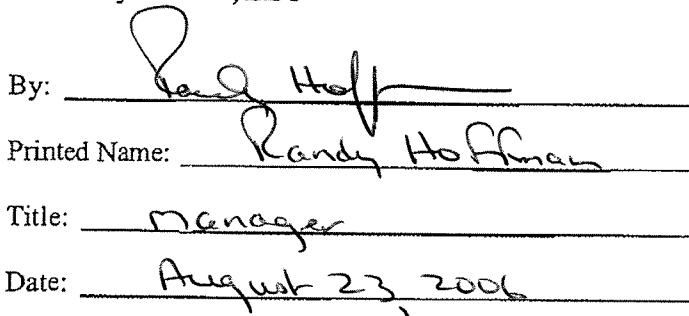 By: Randy Hoff
Printed Name: Randy Hoffman
Title: Manager
Date: August 23, 2006